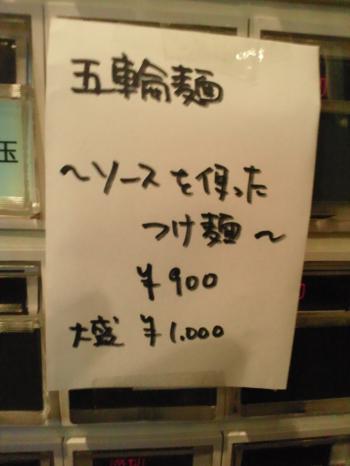 五輪麺
～ソースを使った
つけ麺～
¥900
大盛 ¥1.000
玉